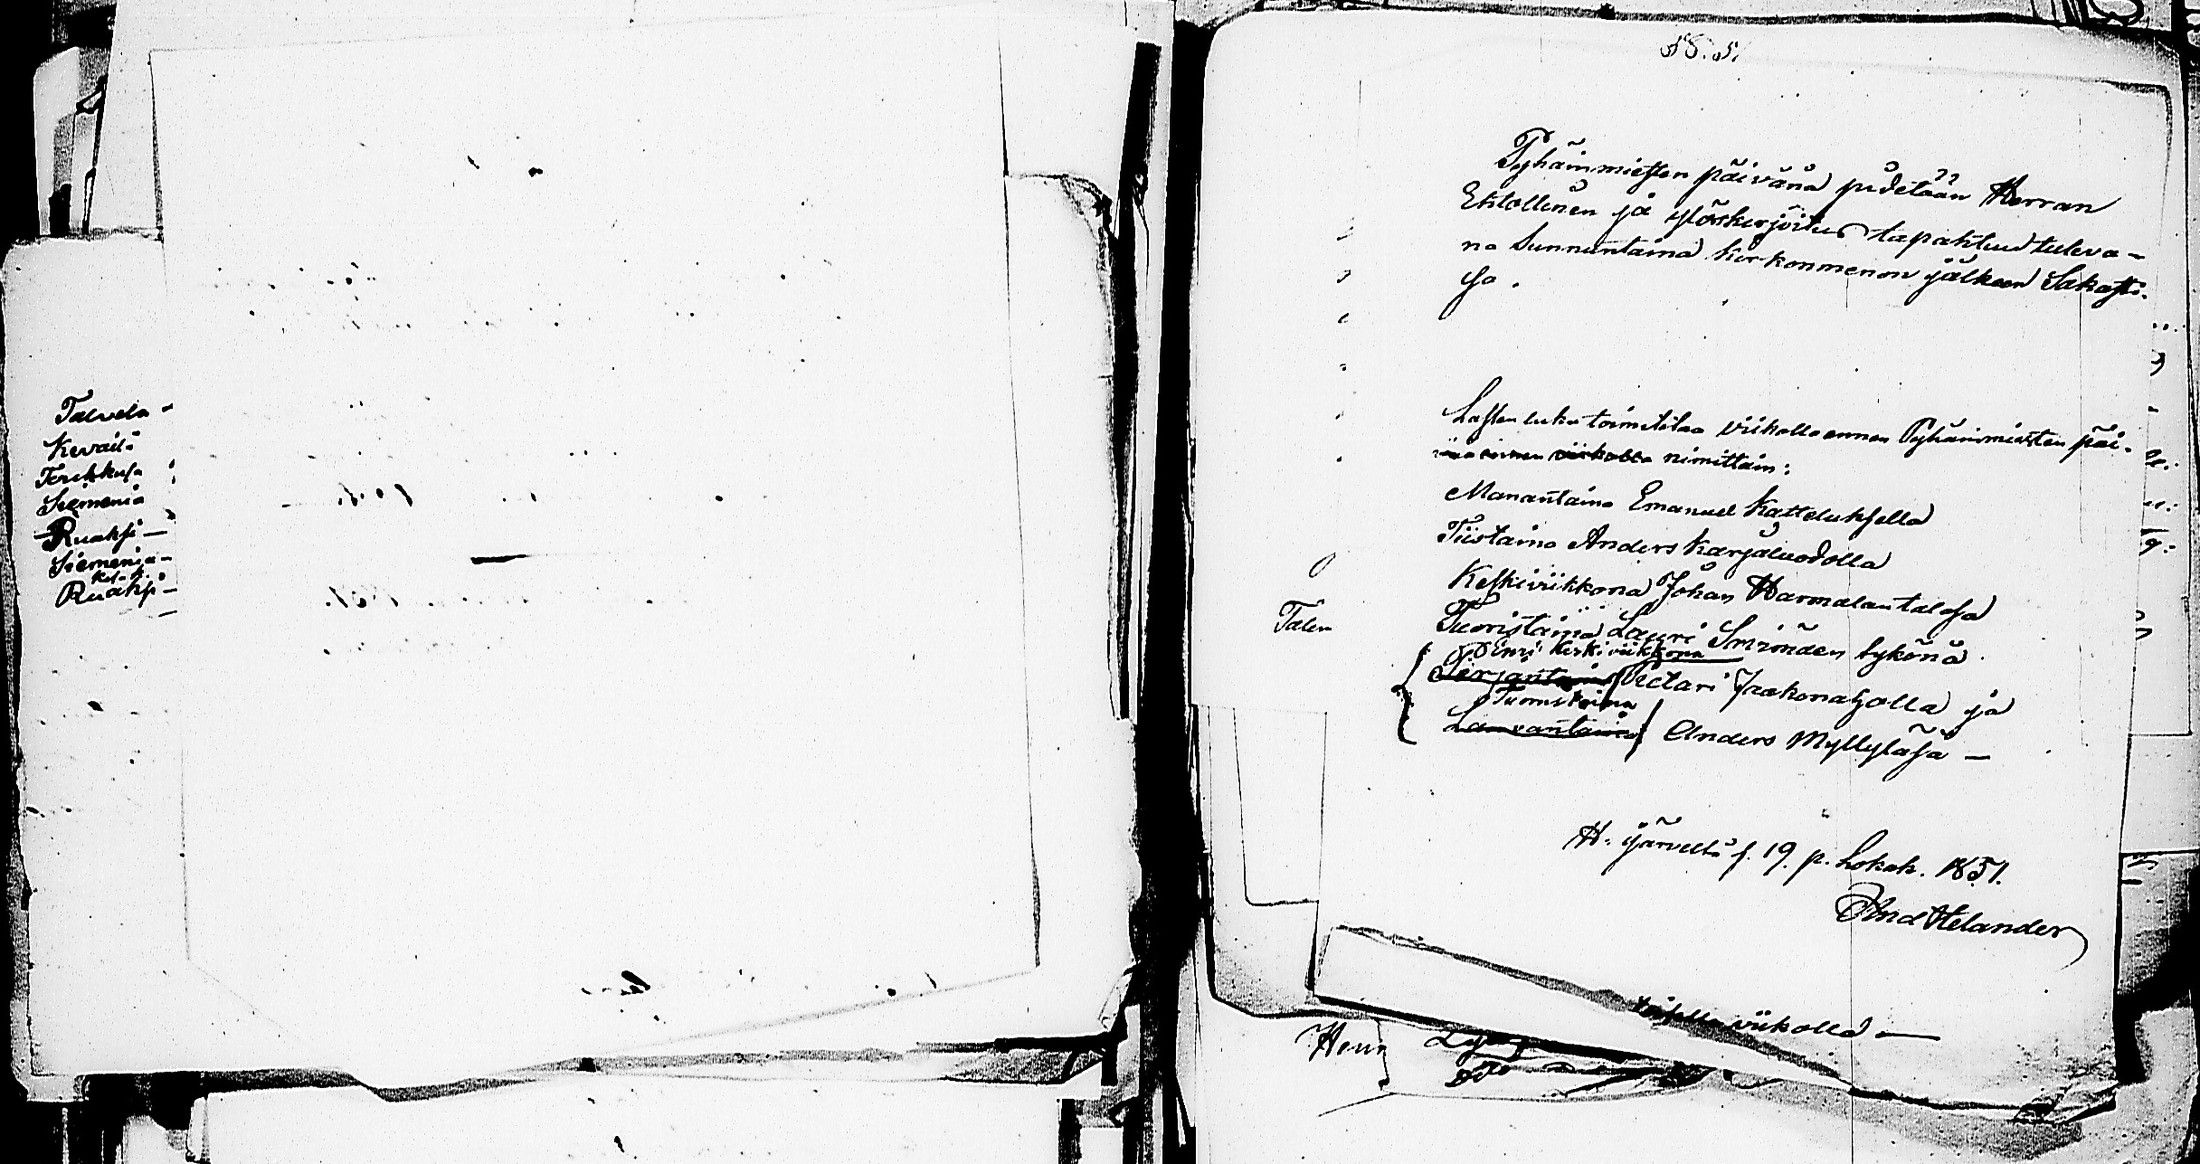 Talvela -
Kevailä
Torikkusa
Siemenia
Ruaksi -
Siemenia -
Ruaksi -
58. s.
Pyhäinmiesten päivänä pidetään Herran
Ehtollinen ja ylöskirjoitus tapahtuu tuleva-
na Sunnuntaina kirkonmenon jälkeen Sakasti-
sa.
Lasten luku toimitetaa viikolla ennen Pyhäinmiesten päi-
nimittäin:
Manantaina Emanuel Katteluksella
Tiistaina Anders Karjaluodolla
Keskiviikkona Johan Harmalan talosa
Tuoristaina Lauri Smiönden tykönä.
Ensi Keskiviikkona
Perjantaina Victari Jaakonaholla ja
Tuoristaina
Lauvantaina Anders Myllyläsä -
Talen
H. järveltä s. 19. p. Lokak. 1851.
And Helander
viikolla -